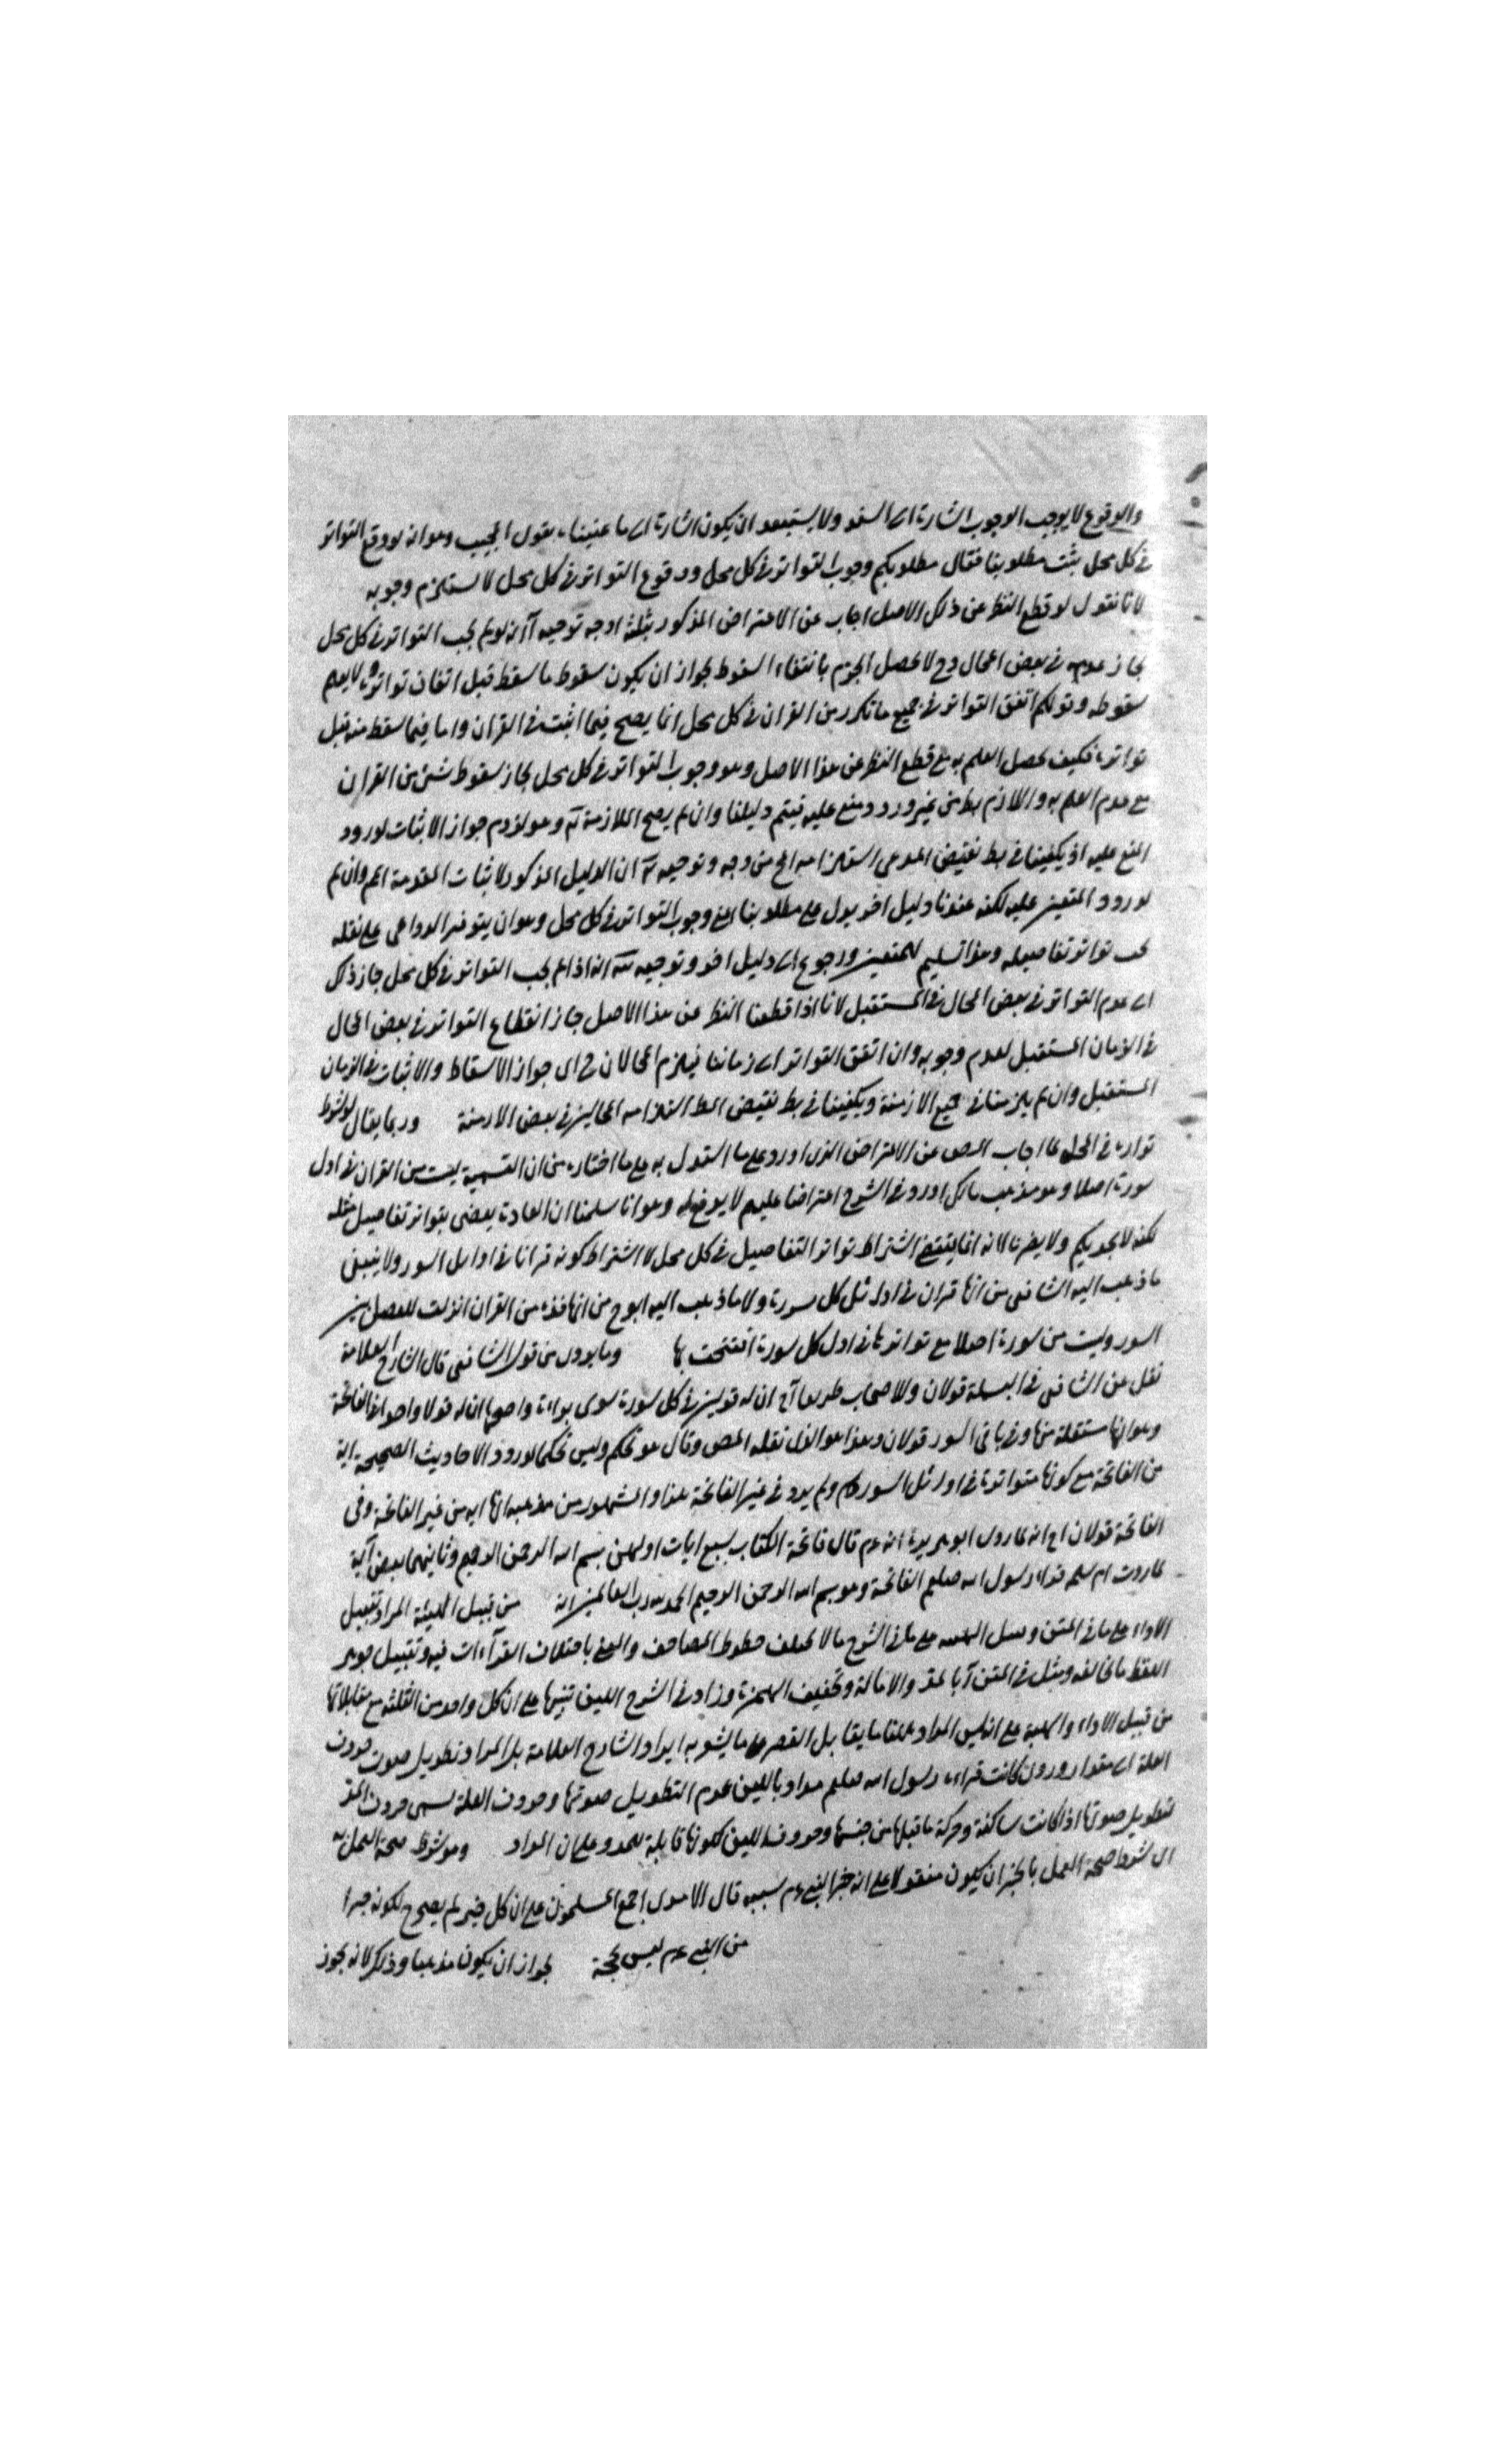 والوقوع لا يوجب الوجوب اشارة الى السند ولا يستبعد ان يكون اشارة الى ما عنينا بقول المجيب وهو انه لو وقع التواتر
في كل محل يثبت مطلوبنا فقال مطلوبكم وجوب التواتر في كل محل ووقوع التواتر في كل محل لا يستلزم وجوبه
لانا نقول لو قطع النظر عن ذلك الاصل اجاب عن الاعتراض المذكور بثلثة اوجه توجيه آ انه لو لم يجب التواتر في كل محل
لجاز عدمه في بعض المحال وح لا يحصل الجزم بانتفاء السقوط لجواز ان يكون سقوط ما سقط قبل اتفاق تواتره ولا يعلم
سقوطه وقولكم اتفق التواتر في جميع ما تكرر من القران في كل محل انما يصح فيما اثبت في القران واما فيما سقط منه قبل
تواتره فكيف يحصل العلم به مع قطع النظر عن هذا الاصل وهو وجوب التواتر في كل محل لجاز سقوط شئ من القران
مع عدم العلم به واللازم بط من غير ورود منع عليه فيتم دليلنا وان لم يصح الملازمة وهو لزوم جواز الاثبات لورود
المنع عليه اذ يكفينا في بط نقيض المدعى استلزامه المح من وجه وتوجيه ان الدليل المذكور لاثبات المقدمة وان لم
لورود عليه لكنه عندنا دليل اخر يدل على مطلوبنا اعني وجوب التواتر في كل محل وهو ان يتوفر الدواعي على نقله
يجب تواتر تفاصيله وهذا تسليم ورجوع الى دليل اخر وتوجيه انه اذا لم يجب التواتر في كل محل جاز ذلك
اي عدم التواتر في بعض المحال في المستقبل لانا اذا قطعنا النظر عن هذا الاصل جاز انقطاع التواتر في بعض المحال
في الزمان المستقبل لعدم وجوبه وان اتفق التواتر الى زماننا فيلزم المحالان اي جواز الاسقاط والاثبات في الزمان
المستقبل وان لم يلزمنا في جميع الازمنة ويكفينا في بط نقيض المط استلزامه المحالين في بعض الازمنة وربما يقال لو شرط
تواتره في المحل لما اجاب المص عن الاعتراض الذي اورد على ما استدل به على ما اختاره من ان التسمية ليست من القران في اول
سورة اصلا وهو مذهب مالك اورد في الشرح اعتراضا عليهم لا يدفع وهو انا سلمنا ان العادة يقضي بتواتر تفاصيل مثله
لكنه لا يجديكم ولا يضرنا لانه انما يقتضي اشتراط تواتر التفاصيل في كل محل لا اشتراط كونه قرانا في اوايل السور ولا ينبغي
ما ذهب اليه الشافعي من انها قران في اول كل سورة ولا ما ذهب اليه ابوح من انها من القران انزلت للفصل بين
السور وليست من سورة اصلا مع تواترها في اول كل سورة افتتحت بها وما يروى من قول الشافعي قال الشارح العلامة
نقل عن الشافعي في البسملة قولان وللاصحاب طريقا ان له قولين في كل سورة سوى براءة واصحها ان له قولا واحدا في الفاتحة
وهو انها مستقلة منها وفي باقي السور قولان وهذا هو الذي نقله المص وقال هو تحكم وليس تحكما لورود الاحاديث الصحيحة اية
من الفاتحة مع كونها متواترة في اوائل السور ولم يرد في غير الفاتحة هذا والمشهور من مذهبه انها اية من غير الفاتحة وفي
الفاتحة قولان انه لما روى ابو هريرة انه عم قال فاتحة الكتاب سبع ايات اولهن بسم الله الرحمن الرحيم وثانيهما بعض آية
لما روت ام سلمه قراء رسول الله صلعم الفاتحة وعد بسم الله الرحمن الرحيم الحمد لله رب العالمين اية من قبيل الهيئة المراد بقبيل
الاداء على ما في المتن على ما في الشرح ما لا يختلف خطوط المصاحف والمعنى باختلاف القرآءات فيه وبقبيل جوهر
اللفظ ما يخالفه ومثل في المتن بالمد والامالة وتخفيف الهمزة وزاد في الشرح اللين تنبيها على ان كل واحد من الثلثة مع مقابلاتها
من قبيل الاداء والهيئة على ان ليس المراد بالمد ما يقابل القصر على ما يشعر به ايراد الشارح العلامة بل المراد تطويل صوت حروف
العلة الى مقدار كانت قراءة رسول الله صلعم مدا وباللين عدم التطويل صوتها وحروف العلة يسمى حروف المد
لتطويل صوتها اذا كانت ساكنة وحركة ما قبلها من جنسها وحروف اللين لكونها قابلة للمد وعلى ان المراد وهو شرط صحة العمل به
اى شرط صحة العمل بالخبر ان يكون منقولا على انه خبر النبي عم سببه قال الامدي اجمع المسلمون على ان كل خبر لم يصرح بكونه خبرا
من النبي عم ليس بحجة لجواز ان يكون مذهبا وذلك لانه يجوز